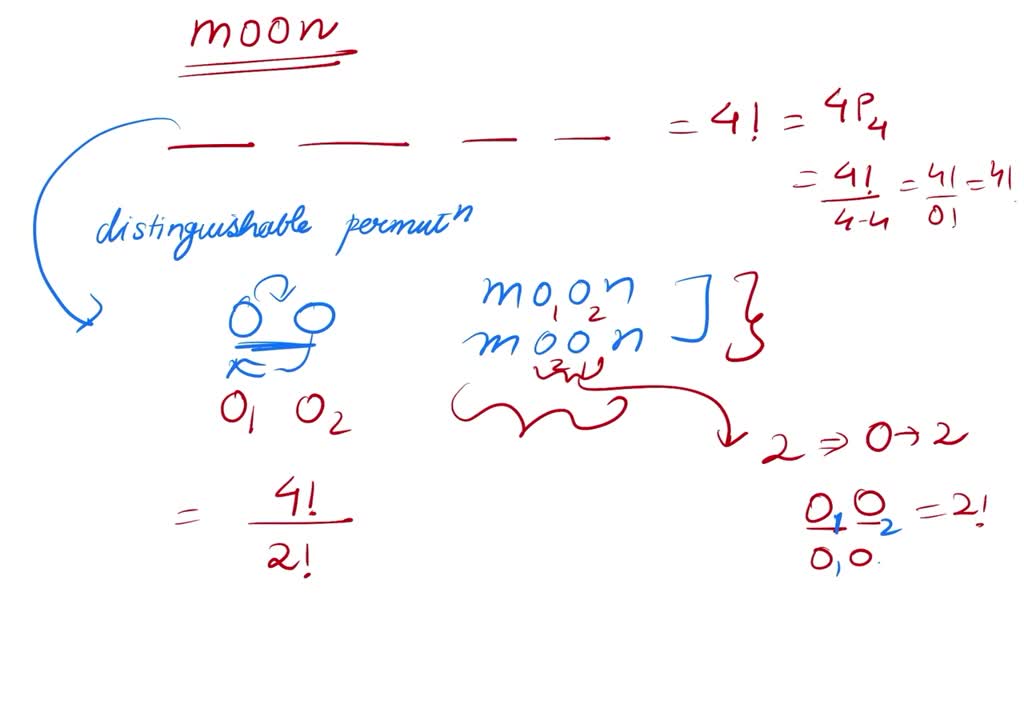 moon
= 4! = 4P4
= 4!/4-4 = 4!/0! = 4!
distinguishable permutⁿ
O O
mo1o2n
moon
2 1
O1 O2
2 ⇒ O → 2
O1 O2 = 2!
O, O
= 4!/2!